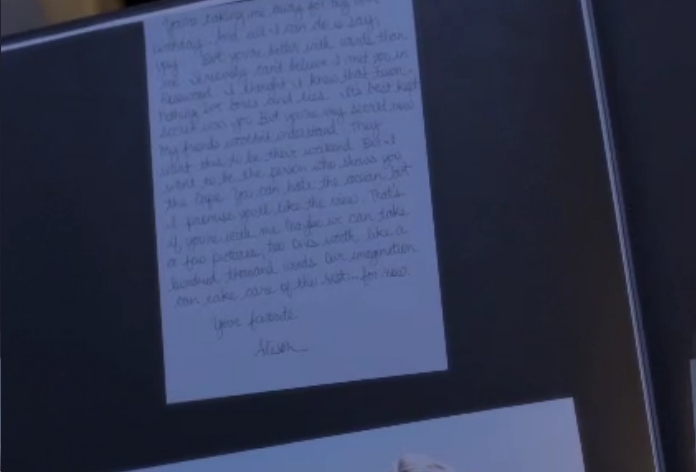 You're taking me away for my
birthday. And all I can do is say,
yay. But you're better with words than
me. Seriously can't believe I met you in
Rosewood. I thought I knew that town.
Nothing but bones and lies. Its best kept
secret was you. But you're my secret now
My friends wouldn't understand. They
want this to be their weekend. But I
want to be the person who shows you
the Cape. You can hate the ocean but
I promise you'll like the view. That's
if you're with me. Maybe we can take
a few pictures, too. Ones worth like a
hundred thousand words. Our imagination
can take care of the rest... for now.
Your favorite
Alison